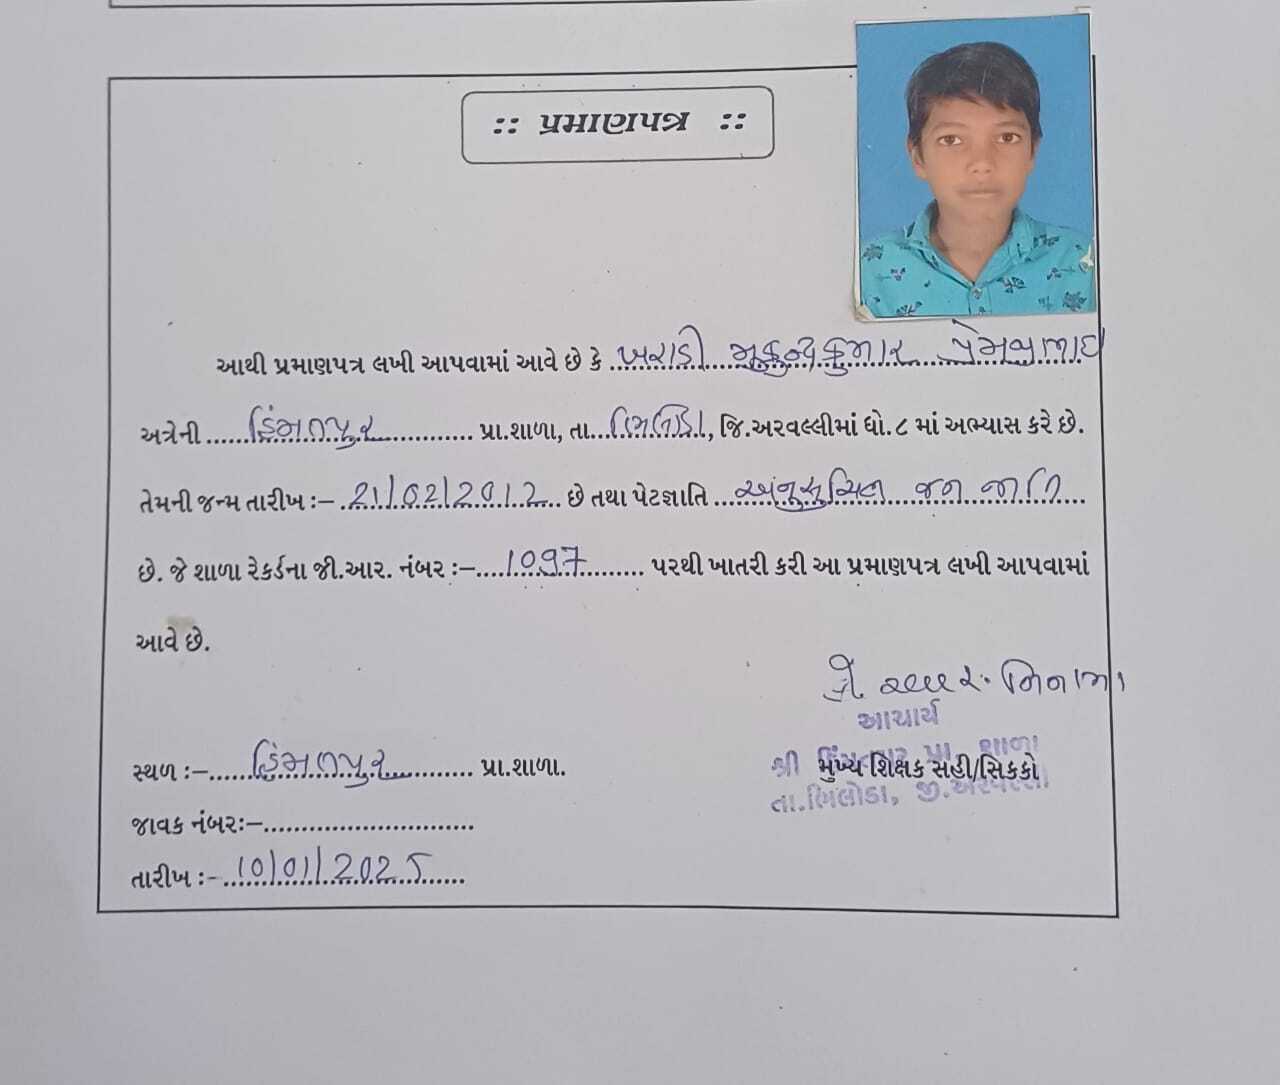 :: પ્રમાણપત્ર ::
આથી પ્રમાણપત્ર લખી આપવામાં આવે છે કે ખરાડી મુકુન્દકુમાર પ્રેમજીભાઇ
અત્રેની હિંમતપુર પ્રા.શાળા, તા. ભિલોડા, જિ.અરવલ્લીમાં ધો.૮ માં અભ્યાસ કરે છે.
તેમની જન્મ તારીખ :- 21/02/2012 છે તથા પેટજ્ઞાતિ અંનુસુચિત જન જાતિ
છે. જે શાળા રેકર્ડના જી.આર. નંબર :- 1097 પરથી ખાતરી કરી આ પ્રમાણપત્ર લખી આપવામાં
આવે છે.
આચાર્ય
સ્થળ :- હિંમતપુર પ્રા.શાળા.
શ્રી પ્રા. શાળા
મુખ્ય શિક્ષક સહી/સિક્કો
તા.ભિલોડા, જી.અરવલ્લી
જાવક નંબર:-
તારીખ :- 10/01/2025